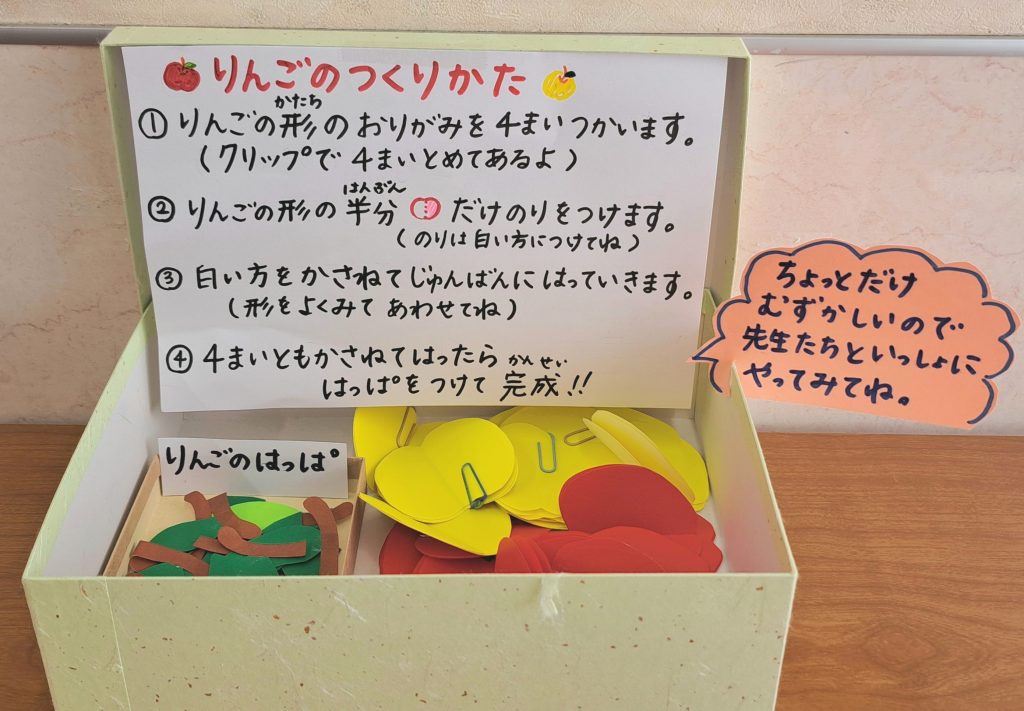 りんごのつくりかた
① りんごの形のおりがみを4まいつかいます。
かたち
(クリップで4まいとめてあるよ)
② りんごの形の半分だけのりをつけます。
はんぶん
(のりは白い方につけてね)
③ 白い方をかさねてじゅんばんにはっていきます。
(形をよくみてあわせてね)
④ 4まいともかさねてはったら
かんせい
はっぱをつけて完成!!
ちょっとだけ
むずかしいので
先生たちといっしょに
やってみてね。
りんごのはっぱ